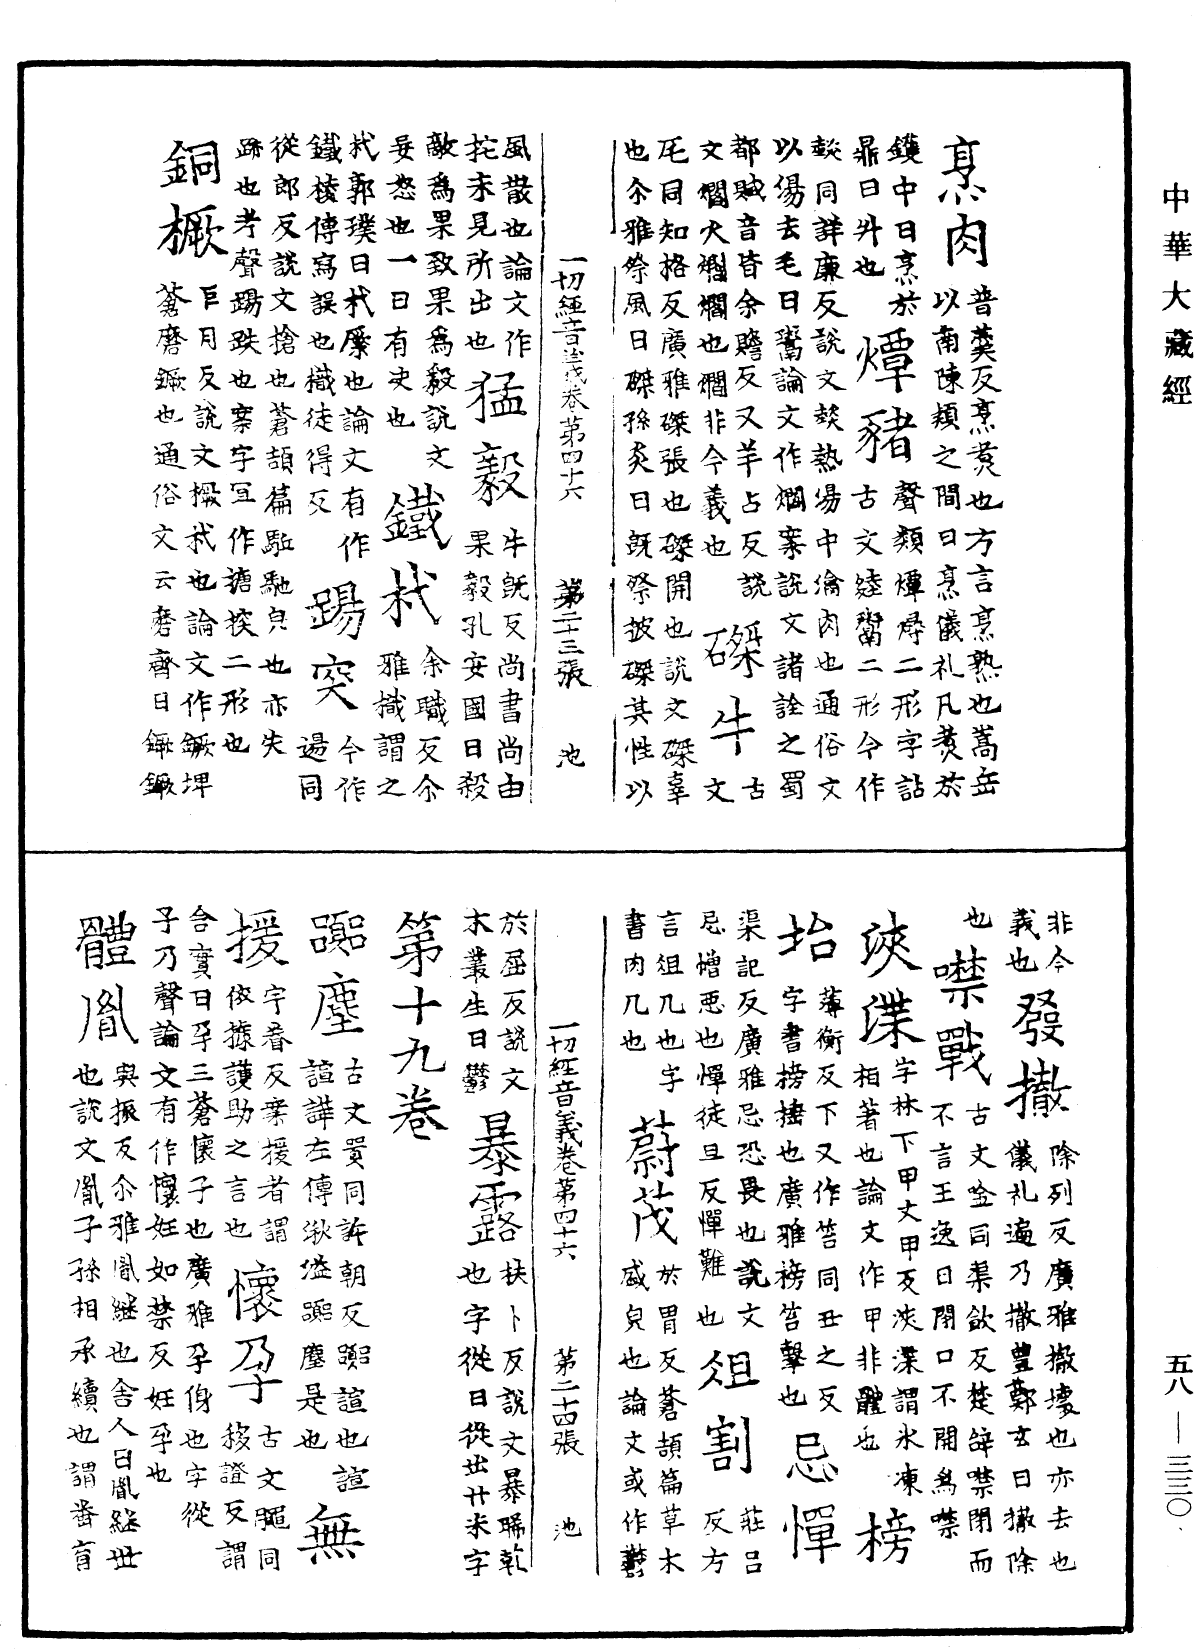 中華大藏經
烹肉 普羹反烹煑也方言烹熟也嵩岳以南陳頴之間曰烹儀礼凡煑於
鑊中曰烹於鼎曰升也 燖豬 聲類燖㷟二形字詁古文䎑鬻二形今作
𤈷同詳廉反說文𤈷熱湯中瀹肉也通俗文以湯去毛曰鬻論文作爓案說文諸詮之蜀
都賦音皆余贍反又羊占反說文爓火爓爓也爓非今義也 磔牛 古文
厇同知格反廣雅磔張也磔開也說文磔辜也尒雅祭風曰磔孫炎曰旣祭披磔其牲以
一切經音義卷第四十六 第二十三張 池
風散也論文作挓未見所出也 猛毅 牛旣反尚書尚由果毅孔安國曰殺
敵爲果致果爲毅說文毅妄怒也一曰有決也 鐵杙 余職反尒雅樴謂之
杙郭璞曰杙橜也論文有作鐵棱傳寫誤也樴徒得反 踢突 今作逿同
從郎反說文搶也蒼頡篇駈馳皃也亦失跡也考聲踢跌也案字宜作搪揬二形也
銅橛 巨月反說文橛杙也論文作鐝埤蒼磨鐝也通俗文云磨齊曰鐝鐝
非今義也 發撤 除列反廣雅撤壞也亦去也儀礼遍乃撤豊鄭玄曰撤除
也 噤戰 古文唫同渠飲反楚辝噤閉而不言王逸曰閉口不開爲噤
浹渫 字林下甲丈甲反浹渫謂氷凍相著也論文作甲非體也 榜
抬 薄衡反下又作笞同丑之反字書榜捶也廣雅榜笞擊也 忌憚
渠記反廣雅忌恐畏也說文忌憎惡也憚徒旦反憚難也 俎割 莊呂反方
言俎几也字書肉几也 蔚茂 於胃反蒼頡篇草木盛皃也論文或作鬱
一切經音義卷第四十六 第二十四張 池
於屈反說文木叢生曰鬱 暴露 扶卜反說文暴晞乹也字從日從出廾米字
第十九卷
䠶塵 古文買同許朝反䠶諠也諠諠譁左傳湫溢䠶塵是也 無
援 宇眷反案援者謂依據護助之言也 懷孕 古文䐗同移證反謂
含實曰孕三蒼懷子也廣雅孕身也字從子乃聲論文有作懷妊如禁反妊孕也
體胤 與振反尒雅胤継也舍人曰胤継世也說文胤子孫相承續也謂蕃育
五八—三三〇